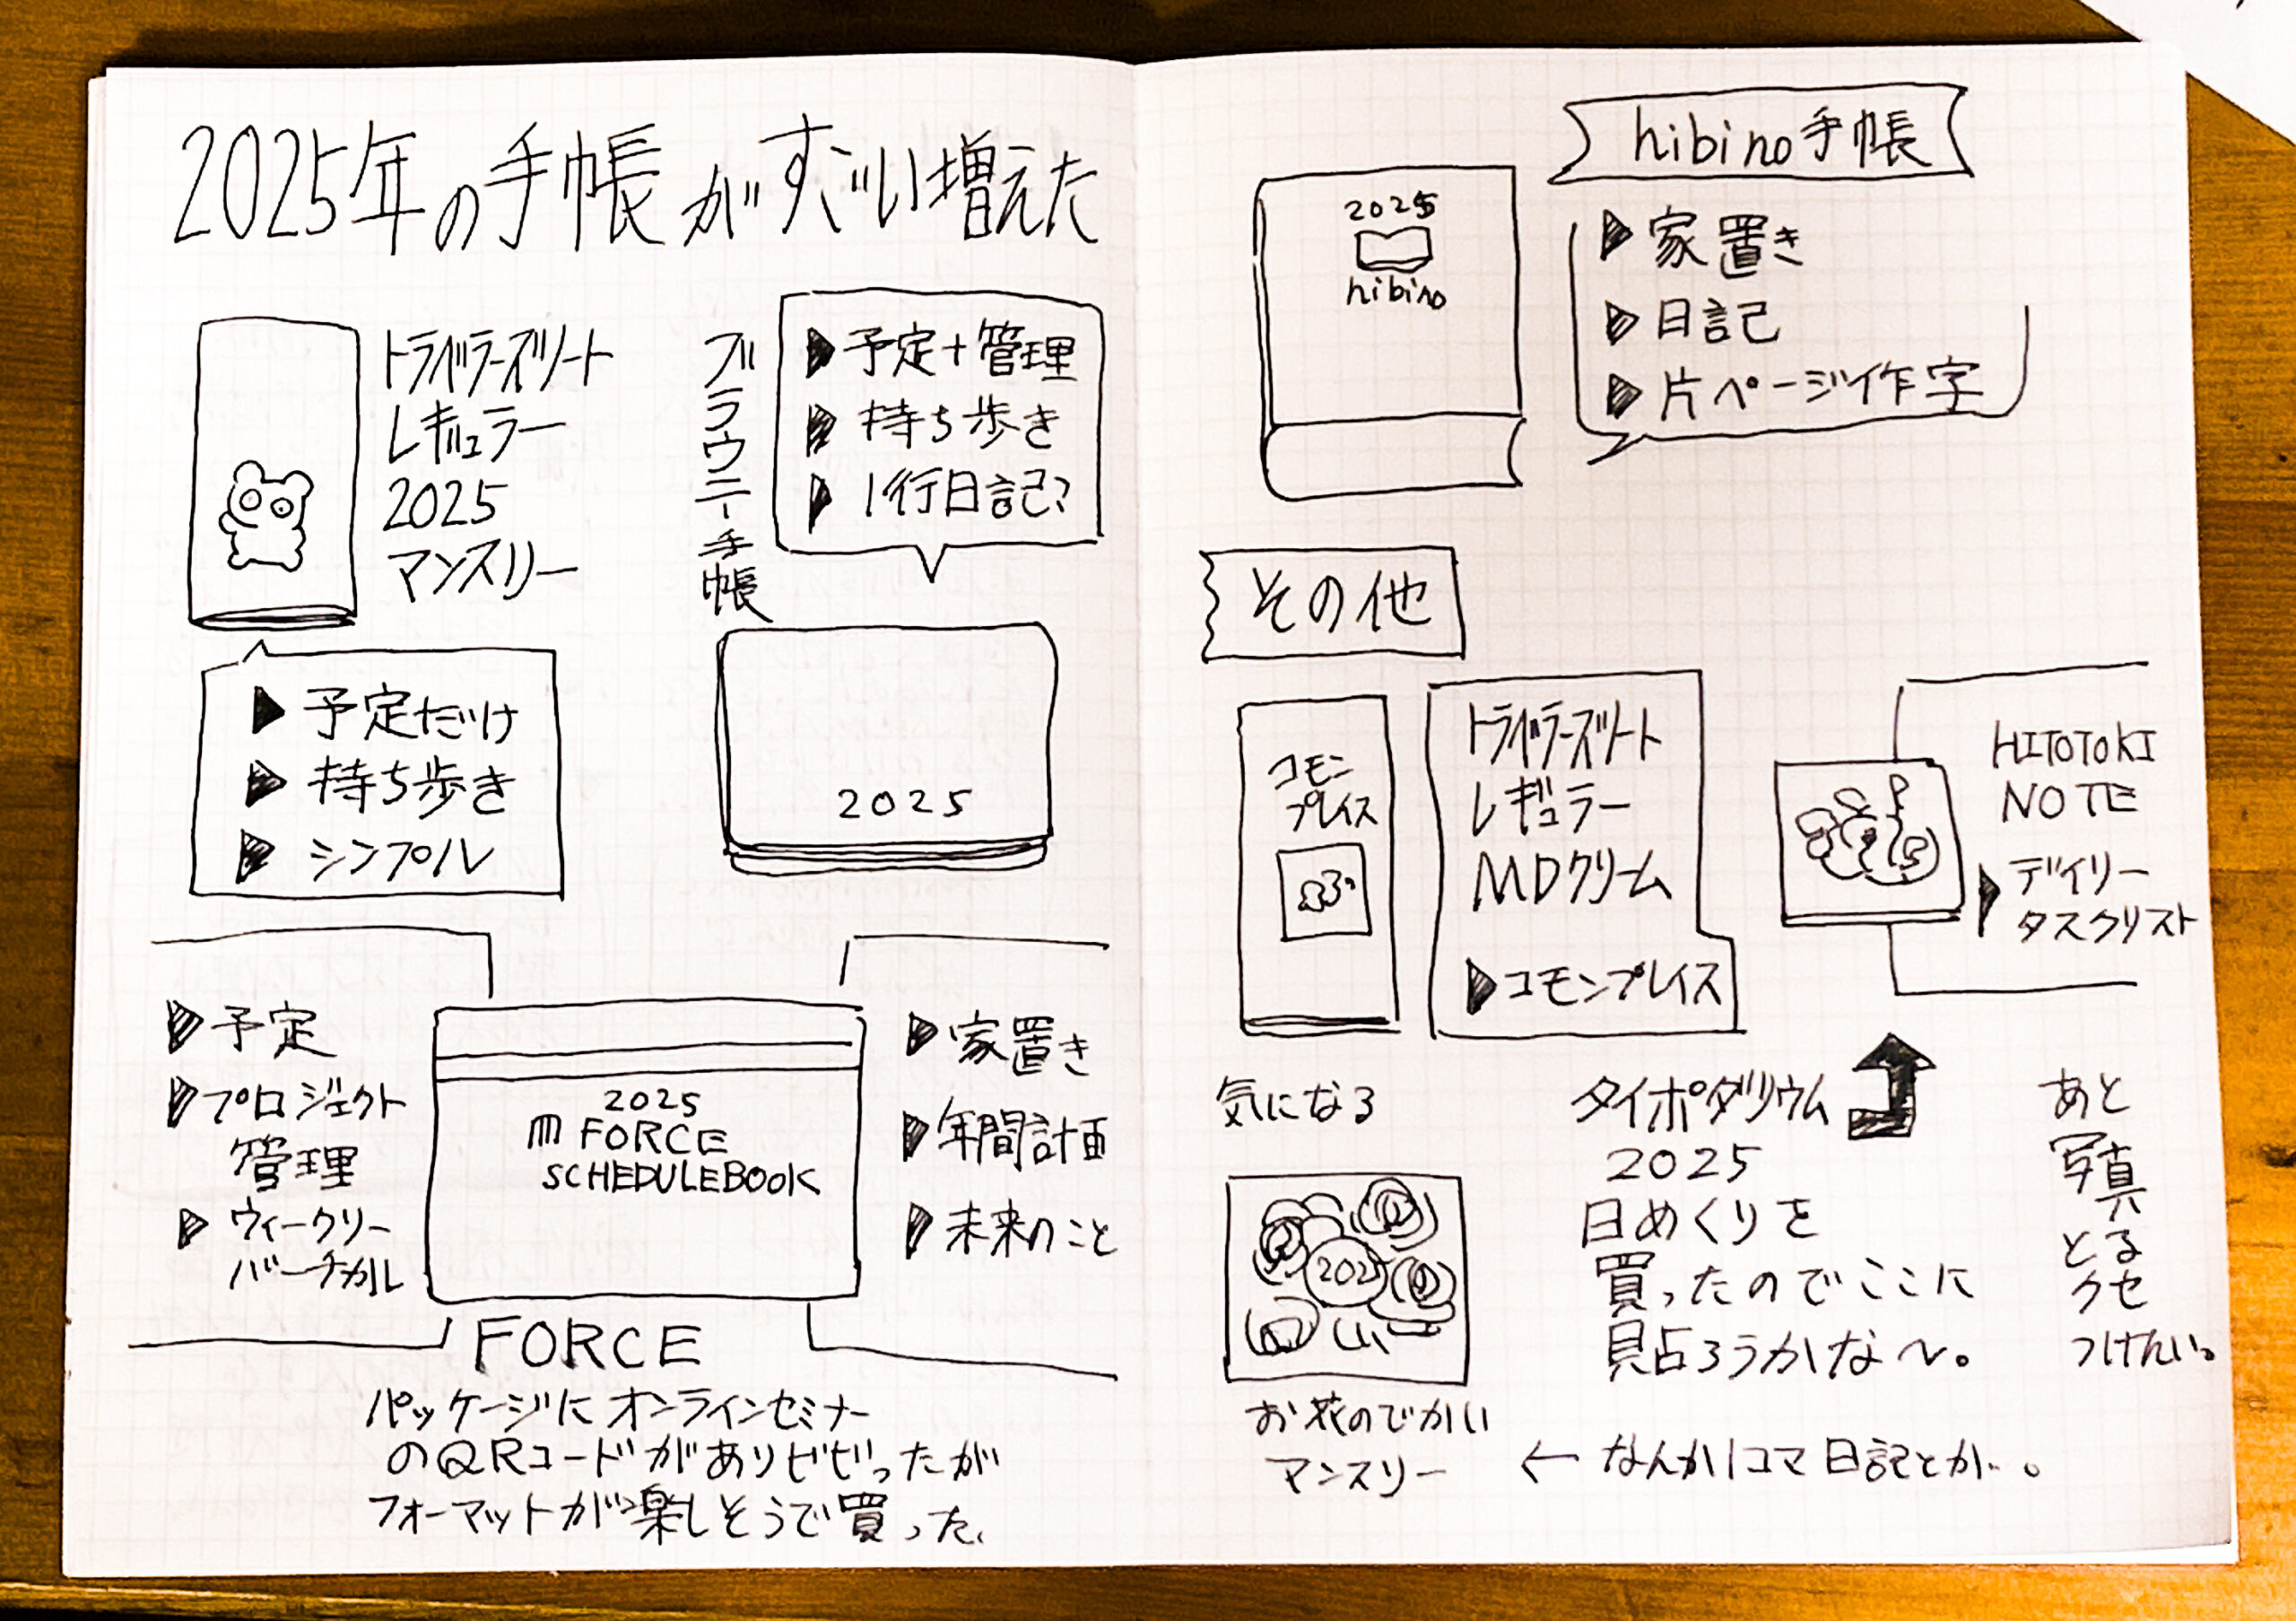 2025年の手帳がすごい増えた
トラベラーズノート
レギュラー
2025
マンスリー
予定だけ
持ち歩き
シンプル
ブラウニー手帳
予定+管理
持ち歩き
1行日記?
2025
予定
プロジェクト
管理
ウィークリー
バーチカル
2025
FORCE
SCHEDULEBOOK
家置き
年間計画
未来のこと
FORCE
パッケージにオンラインセミナー
のQRコードがありビビったが
フォーマットが楽しそうで買った
hibino手帳
2025
hibino
家置き
日記
片ページ作字
その他
コモン
プレイス
トラベラーズノート
レギュラー
MDクリーム
コモンプレイス
HITOTOKI
NOTE
デイリー
タスクリスト
気になる
2025
お花のでかい
マンスリー
← なんか1コマ日記とか…。
タイポダリウム
2025
日めくりを
買ったのでここに
貼ろうかな〜。
あと
写真
とる
クセ
つけたい。